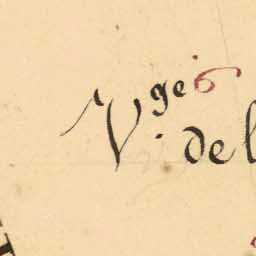 Vge 6
. del